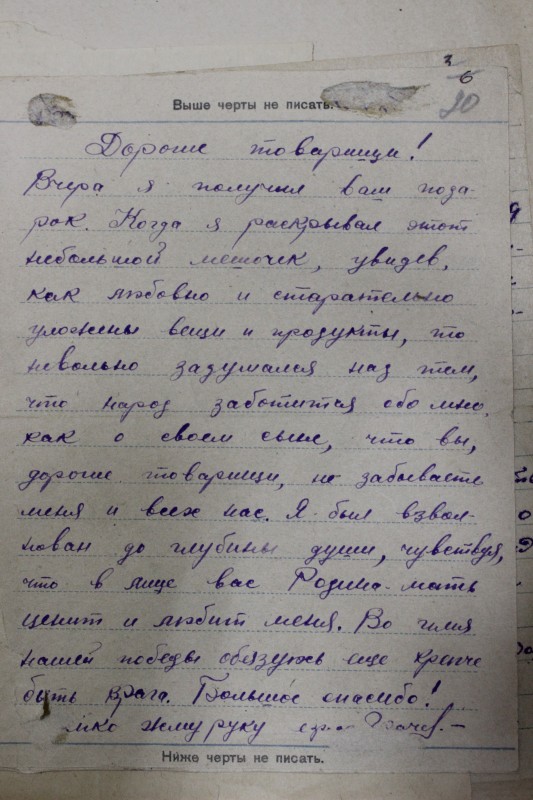 3
6
20
Выше черты не писать.
Дорогие товарищи!
Вчера я получил ваш пода
рок. Когда я раскрывал этот
небольшой мешочек, увидев,
как любовно и старательно
уложены вещи и продукты, то
невольно задумался над тем,
что народ заботится обо мне,
как о своем сыне, что вы,
дорогие товарищи, не забываете
меня и всех нас. Я был взвол
нован до глубины души, чувствуя,
что в лице вас Родина-мать
ценит и любит меня. Во имя
нашей победы обязуюсь еще крепче
быть врага. Большое спасибо!
жму руку
Ниже черты не писать.